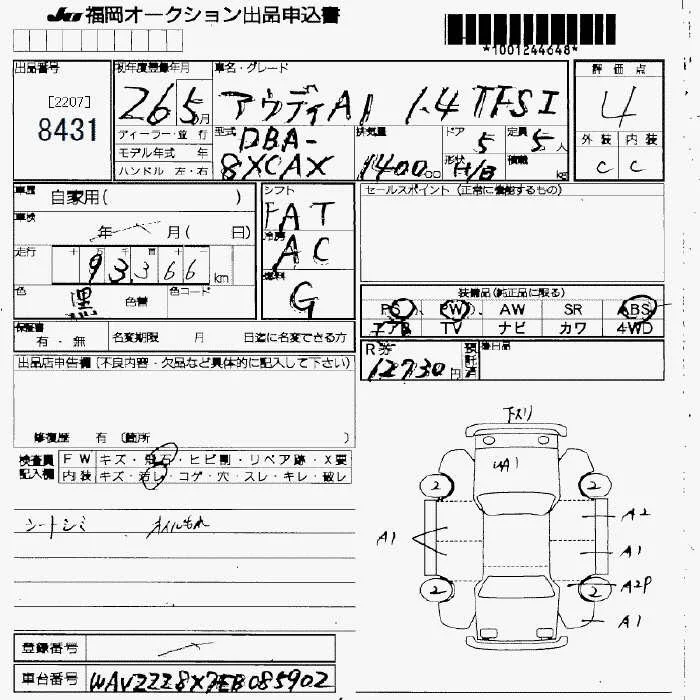 JU 福岡オークション出品申込書
*1001244648*
出品番号
[2207]
8431
初年度登録年月
26 5月
車名・グレード
アウディA1 1.4 TFSI
評価点
4
外装 内装
C C
ディーラー・並行
モデル年式 年
ハンドル 左・右
型式
DBA-
8XCAX
排気量
1400
ドア
5
定員
5人
形状
H/B
積載
kg
車歴
自家用( )
車検
年 月( 日)
走行
十 万 千 百 十 一
93366 km
色
色替
色コード
シフト
FAT
冷房
AC
燃料
G
セールスポイント(正常に機能するもの)
装備品(純正品に限る)
PS PW AW SR ABS
エアB TV ナビ カワ 4WD
保証書
有・無
名変期限 月 日迄に名変できる方
R券
12730円
預託済
後日品
出品店申告欄(不良内容・欠品など具体的に記入して下さい)
修復歴 有(箇所 )
検査員
記入欄
FW キズ・飛石・ヒビ割・リペア跡・X要
内装 キズ・汚レ・コゲ・穴・スレ・キレ・破レ
シートシミ オイルもれ
下スリ
UA1
2 2
A1
A2
A1
A2P
2 2
A1
登録番号
車台番号
WAVZZZ8X7EB085902